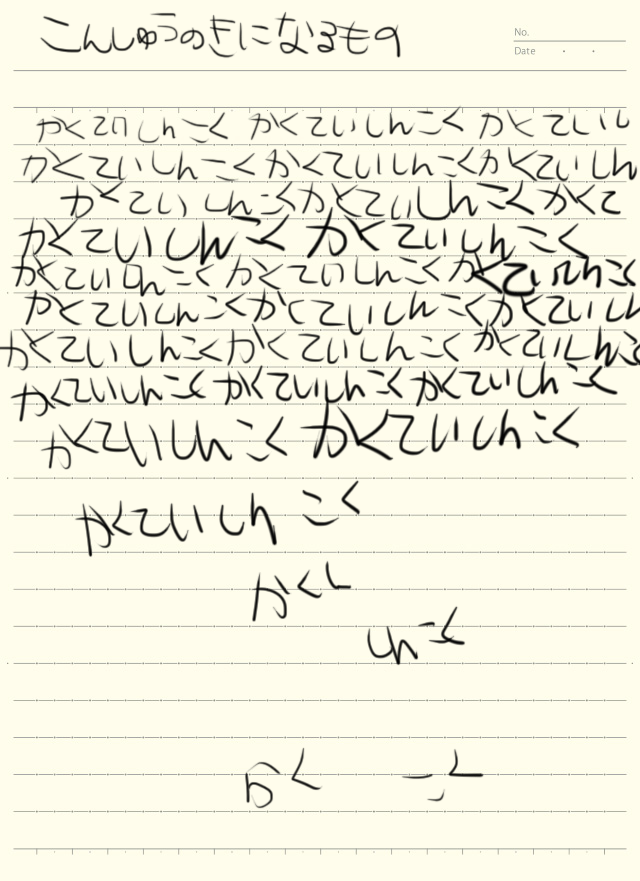 こんしゅうのきになるもの
No.
Date
かくてい しんこく かくていしんこく かくていし
かくていしんこくかくていしんこくかくていしん
かくてい しんこくかくていしんこくかくて
かくていしんこく かくていしんこく
かくていしんこく かくていしんこくかくていしんこく
かくていしんこくかくていしんこくかくていしん
かくていしんこくかくていしんこく かくていしんこ
かくていしんこく かくていしんこくかくていしんこく
かくていしんこく かくていしんこく
かくていしんこく
かくし
しんこく
かく こく